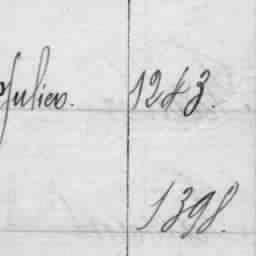 Julien. 1283.
1398.